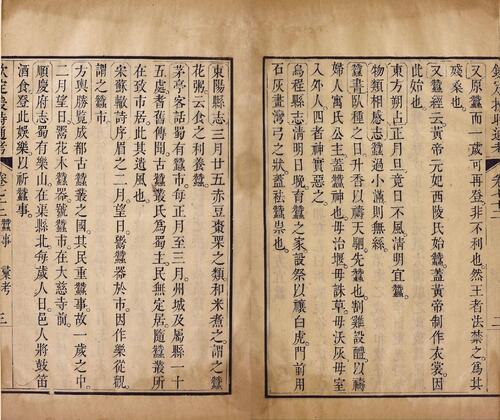 又原蠶一歲可再登非不利也然王者法禁之為其
殘桑也。
又蠶經云黃帝元妃西陵氏始蠶蓋黃帝制作衣裳因
此始也。
東方朔占正月旦竟日不風清明宜蠶。
物類相感志蠶過小滿則無絲。
蠶書臥種之日升香以禱天駟先蠶也割雞設醴以禱
婦人寓氏公主蓋蠶神也毋治堰毋誅草毋沃灰毋室
入外人四者神實惡之。
烏程縣志清明日晚育蠶之家設祭以禳白虎門前用
石灰畫灣弓之狀蓋祛蠶祟也。
東陽縣志三月廿五赤豆棗栗之類和米煮之謂之蠶
花粥云食之利養蠶。
茅亭客話蜀有蠶市每正月至三月州城及屬縣一十
五處耆舊傳聞古蠶叢氏為蜀主民無定居隨蠶叢所
在致市居此其遺風也。
宋蘇轍詩序眉之二月望日鬻蠶器於市因作樂從觀
謂之蠶市。
方輿勝覽成都古蠶叢之國其民重蠶事故一歲之中
二月望日鬻花木蠶器號蠶市在大慈寺前。
順慶府志蜀有樂山在渠縣北每歲人日邑人將鼓笛
酒食登此娛樂以祈蠶事。
欽定授時通考 蠶事 彙考 三